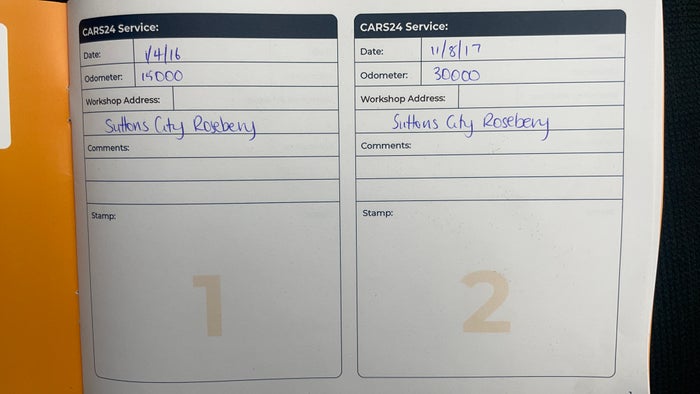 CARS24 Service:
Date: 1/4/16
Odometer: 15000
Workshop Address:
Suttons City Rosebery
Comments:
Stamp:
1
CARS24 Service:
Date: 11/8/17
Odometer: 30000
Workshop Address:
Suttons City Rosebery
Comments:
Stamp:
2